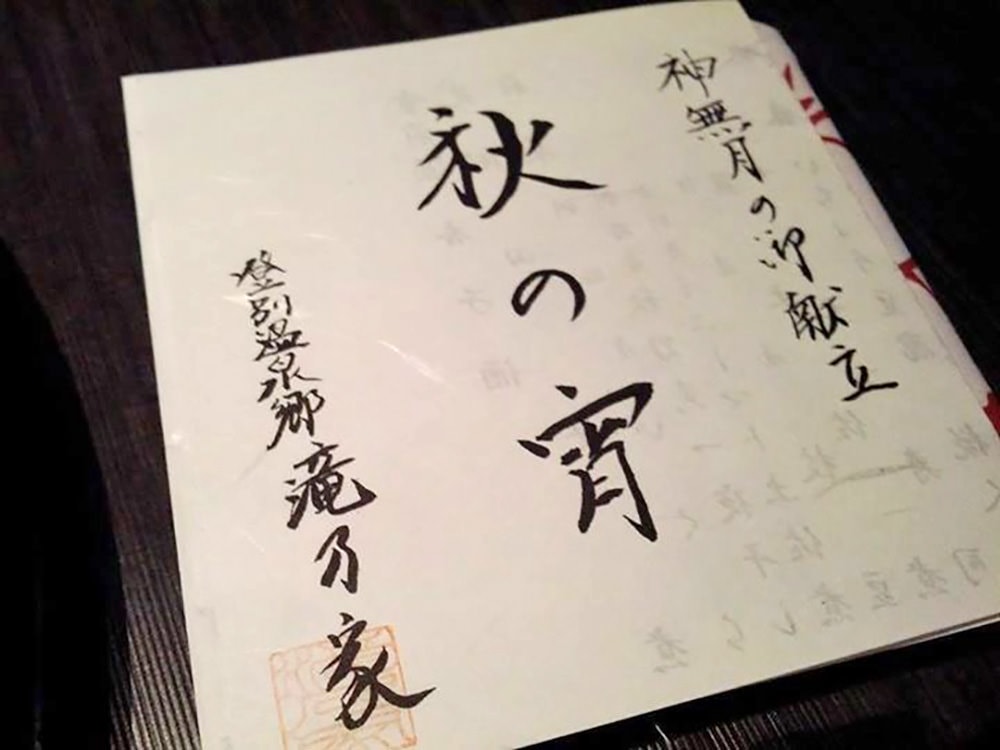 神無月の御献立
秋の宵
登別温泉郷 滝乃家